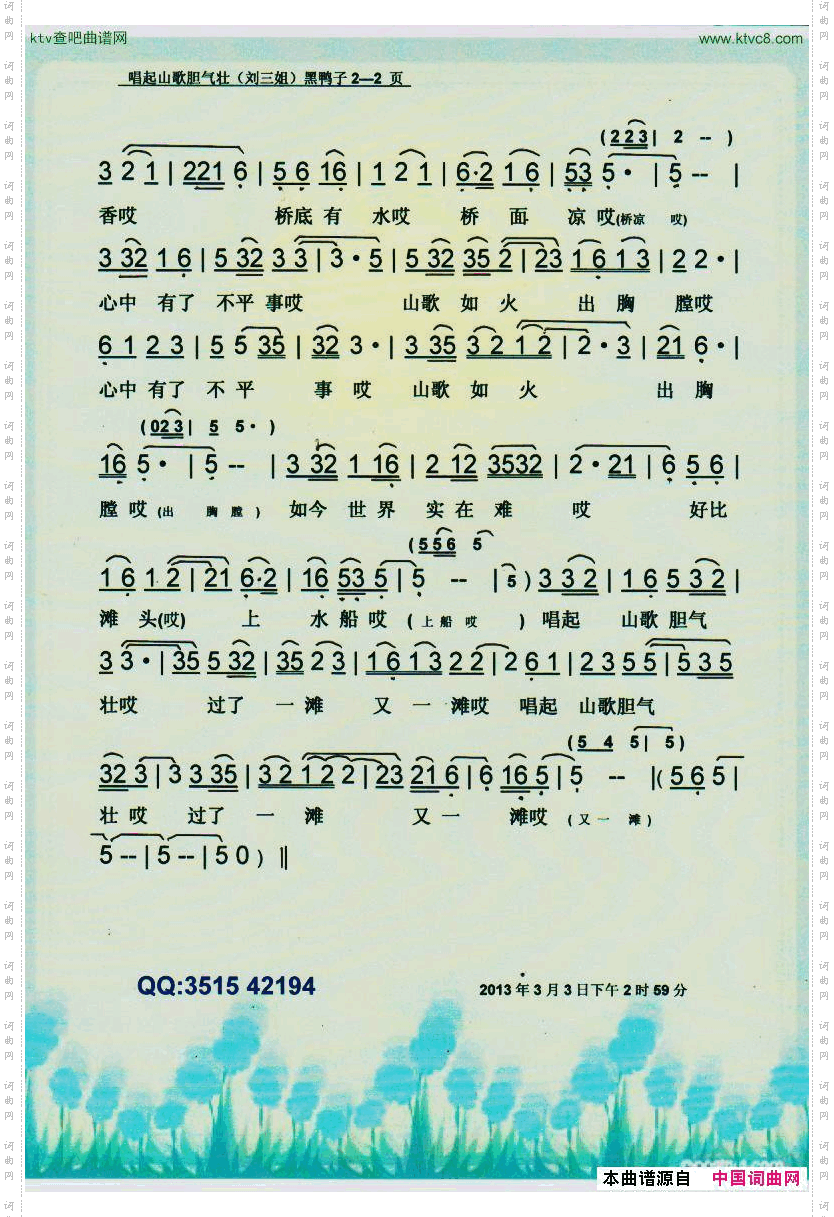 ktv查吧曲谱网 www.ktvc8.com
唱起山歌胆气壮（刘三姐）黑鸭子2—2 页
(2 2 3 | 2 -- )
3 2 1 | 221 6 | 5 6 16 | 1 2 1 | 6·2 1 6 | 53 5· | 5 -- |
香哎 桥底 有 水哎 桥 面 凉 哎(桥凉 哎)
3 32 1 6 | 5 32 3 3 | 3·5 | 5 32 35 2 | 23 1 6 1 3 | 2 2· |
心中 有了 不平 事哎 山歌 如 火 出 胸 膛哎
6 1 2 3 | 5 5 35 | 32 3· | 3 35 3 2 1 2 | 2·3 | 21 6· |
心中 有了 不 平 事 哎 山歌 如 火 出 胸
(02 3 | 5 5· )
16 5· | 5 -- | 3 32 1 16 | 2 12 3532 | 2·21 | 6 5 6 |
膛 哎 (出 胸 膛 ) 如今 世 界 实 在 难 哎 好比
(5 5 6 5
1 6 1 2 | 21 6·2 | 16 53 5 | 5 -- | 5 ) 3 3 2 | 1 6 5 3 2 |
滩 头(哎) 上 水 船 哎 ( 上 船 哎 ) 唱起 山歌 胆气
3 3· | 35 5 32 | 35 2 3 | 1 6 1 3 2 2 | 2 6 1 | 2 3 5 5 | 5 3 5
壮哎 过了 一 滩 又 一 滩哎 唱起 山歌胆气
(5 4 5 | 5 )
32 3 | 3 3 35 | 3 2 1 2 2 | 23 21 6 | 6 16 5 | 5 -- |( 5 6 5 |
壮 哎 过了 一 滩 又 一 滩哎 ( 又 一 滩 )
5 -- | 5 -- | 5 0 ) ‖
QQ:3515 42194
2013 年 3 月 3 日下午 2 时 59 分
本曲谱源自 中国词曲网